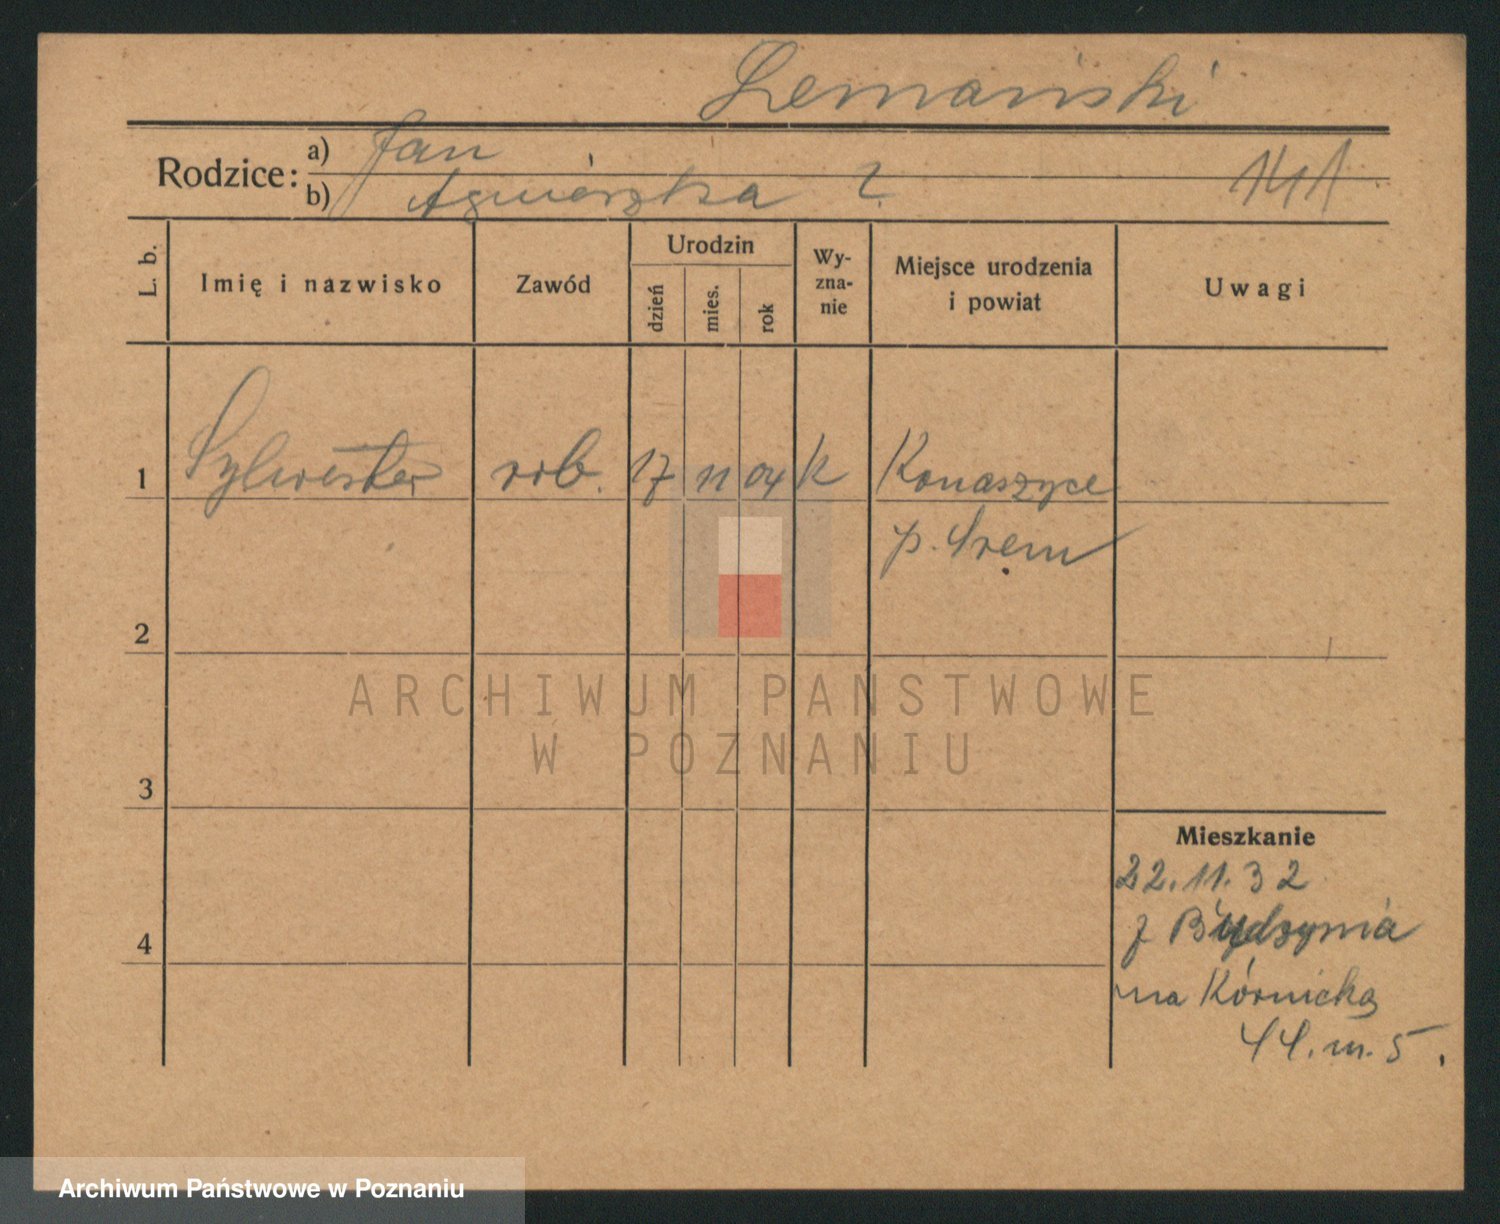 Lemański
Rodzice: a) Jan
b) Agnieszka ?
141
L. b. Imię i nazwisko Zawód Urodzin dzień mies. rok Wy-zna-nie Miejsce urodzenia i powiat Uwagi
1 Sylwester rob. 17 11 04 k Konaszyce
p. Śrem
2
ARCHIWUM PAŃSTWOWE
W POZNANIU
3
Mieszkanie
22.11.32
z Budzynia
4
na Kórnicką
44. m. 5.
Archiwum Państwowe w Poznaniu